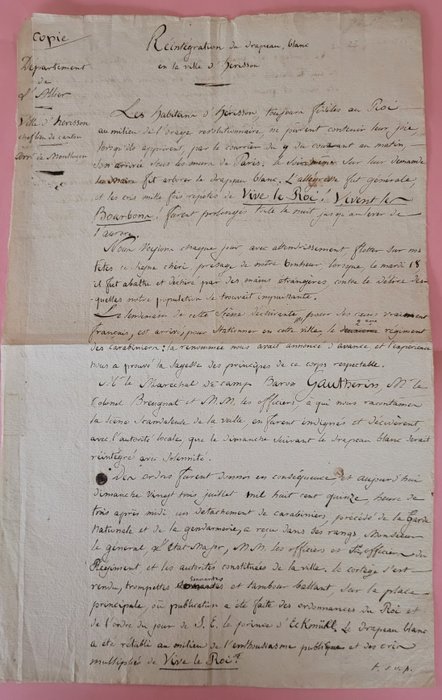 Copie
Réintégration du drapeau blanc
en la ville d'hérisson
Département
de
L'Allier
Ville d'hérisson
chef lieu de canton
Les habitans d'hérisson, toujours fidèles au Roi
au milieu de l'orage révolutionnaire, ne purent contenir leur joie,
lorsqu'ils apprirent, par le courrier du 9 du courant au matin,
son arrivée sous les murs de Paris. Sur leur demande
fit arborer le drapeau blanc. L'allégresse fut générale,
et les cris mille fois répétés de Vive le Roi! Vivent les
Bourbons! furent prolongés toute la nuit jusqu'au lever de
l'aurore.
Nous voyions chaque jour avec attendrissement flotter sur nos
têtes ce signe chéri présage de notre bonheur lorsque le mardi 18
il fut abattu et déchiré par des mains étrangères contre le délire des-
quelles notre population se trouvait impuissante.
Le lendemain de cette scène déchirante pour des cœurs vraiment
français, est arrivé, pour stationner en cette ville, le régiment
des carabiniers: la renommée nous avait annoncé d'avance et l'expérience
nous a prouvé la sagesse des principes de ce corps respectable.
le Maréchal de camp Baron Gautherin, Mr. le
Colonel Breugnat et M.M. les officiers, à qui nous racontames
la scène scandaleuse de la veille, en furent indignés et décidèrent,
avec l'autorité locale, que le dimanche suivant le drapeau blanc serait
réintégré avec solemnité.
Des ordres furent donnés en conséquence et aujourd'hui
dimanche vingt trois juillet mil huit cent quinze heure de
trois après midi un détachement de carabiniers, précédé de la Garde
Nationale et de la gendarmerie, a reçu dans ses rangs Monsieur
le général et l'Etat-Major, M.M. les officiers et du
Régiment et les autorités constituées de la ville. le cortège s'est
rendu, trompettes et tambour battant, sur la place
principale, où publication a été faite des ordonnances du Roi et
de l'ordre du jour de S. E. le prince d'Eckmühl. Le drapeau blanc
a été rétabli au milieu de l'enthousiasme publique et des cris
multipliés de Vive le Roi!